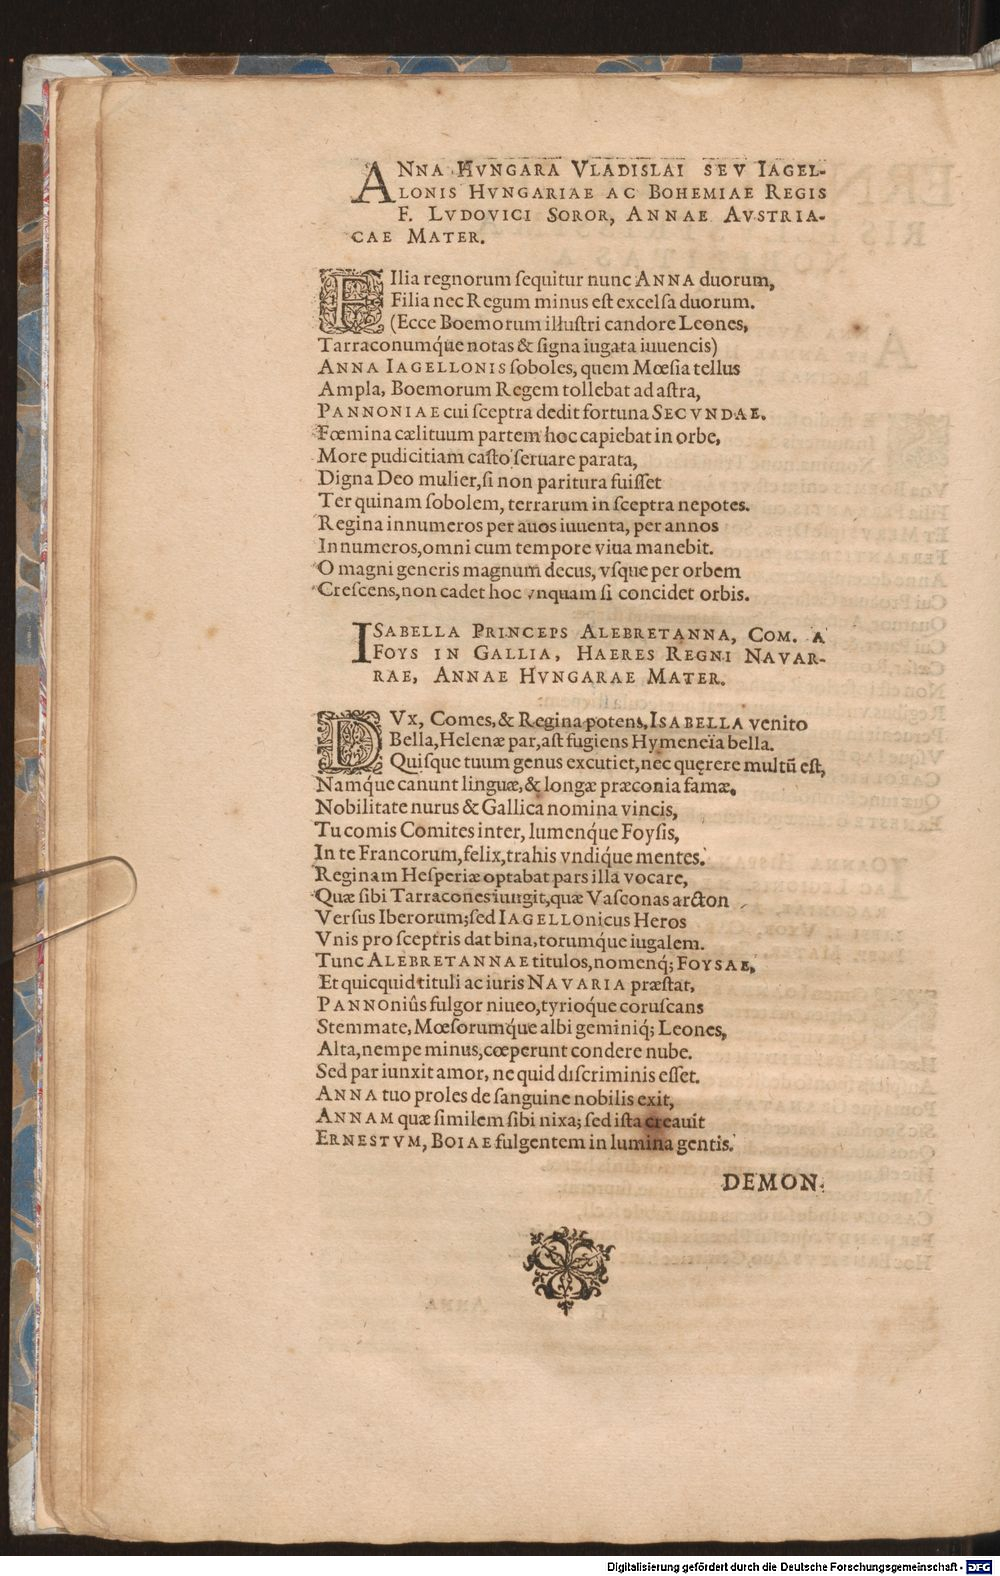 ANNA HVNGARA VLADISLAI SEV IAGEL-
LONIS HVNGARIAE AC BOHEMIAE REGIS
F. LVDOVICI SOROR, ANNAE AVSTRIA-
CAE MATER.
FIlia regnorum ſequitur nunc ANNA duorum,
Filia nec Regum minus eſt excelſa duorum.
(Ecce Boemorum illuſtri candore Leones,
Tarraconumq́ue notas & ſigna iugata iuuencis)
ANNA IAGELLONIS ſoboles, quem Mœſia tellus
Ampla, Boemorum Regem tollebat ad aſtra,
PANNONIAE cui ſceptra dedit fortuna SECVNDAE.
Fœmina cælituum partem hoc capiebat in orbe,
More pudicitiam caſto ſeruare parata,
Digna Deo mulier, ſi non paritura fuiſſet
Ter quinam ſobolem, terrarum in ſceptra nepotes.
Regina innumeros per auos iuuenta, per annos
Innumeros, omni cum tempore viua manebit.
O magni generis magnum decus, vſque per orbem
Creſcens, non cadet hoc vnquam ſi concidet orbis.
ISABELLA PRINCEPS ALEBRETANNA, COM. A
FOYS IN GALLIA, HAERES REGNI NAVAR-
RAE, ANNAE HVNGARAE MATER.
DVx, Comes, & Regina potens, ISABELLA venito
Bella, Helenæ par, aſt fugiens Hymeneïa bella.
Quiſque tuum genus excutiet, nec quęrere multũ eſt,
Namq́ue canunt linguæ, & longæ præconia famæ.
Nobilitate nurus & Gallica nomina vincis,
Tu comis Comites inter, lumenq́ue Foyſis,
In te Francorum, felix, trahis vndiq́ue mentes.
Reginam Heſperiæ optabat pars illa vocare,
Quæ ſibi Tarracones iungit, quæ Vaſconas arcton
Verſus Iberorum; ſed IAGELLOnicus Heros
Vnis pro ſceptris dat bina, torumq́ue iugalem.
Tunc ALEBRETANNAE titulos, nomenq́; FOYSAE,
Et quicquid tituli ac iuris NAVARIA præſtat,
PANNOniûs fulgor niueo, tyrioq́ue coruſcans
Stemmate, Mœſorumq́ue albi geminiq́; Leones,
Alta, nempe minus, cœperunt condere nube.
Sed par iunxit amor, ne quid diſcriminis eſſet.
ANNA tuo proles de ſanguine nobilis exit,
ANNAM quæ ſimilem ſibi nixa; ſed iſta creauit
ERNESTVM, BOIAE fulgentem in lumina gentis.
DEMON.
Digitalisierung gefördert durch die Deutsche Forschungsgemeinschaft - DFG